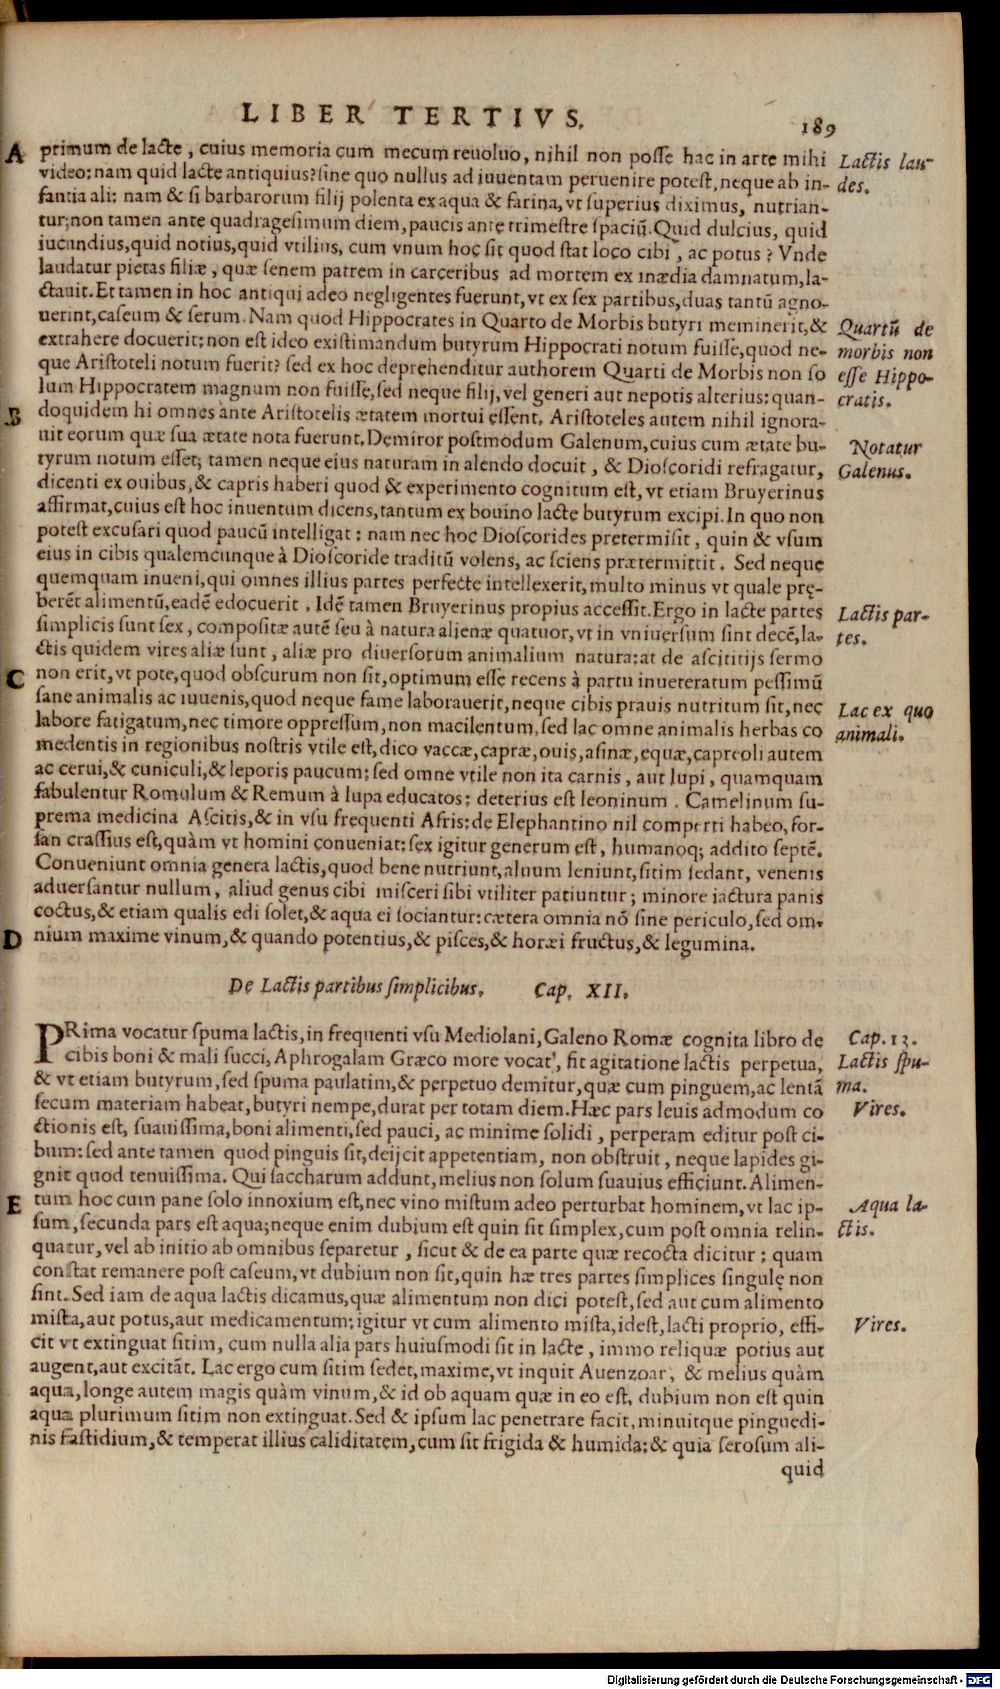 LIBER TERTIVS.
189
A
primum de lacte, cuius memoria cum mecum reuoluo, nihil non posse hac in arte mihi
Lactis lau-
video: nam quid lacte antiquius? sine quo nullus ad iuuentam peruenire potest, neque ab in-
des.
fantia ali: nam & si barbarorum filij polenta ex aqua & farina, vt superius diximus, nutrian-
tur; non tamen ante quadragesimum diem, paucis ante trimestre spaciũ. Quid dulcius, quid
iucundius, quid notius, quid vtilius, cum vnum hoc sit quod stat loco cibi, ac potus? Vnde
laudatur pietas filiæ, quæ senem patrem in carceribus ad mortem ex inædia damnatum, la-
ctauit. Et tamen in hoc antiqui adeo negligentes fuerunt, vt ex sex partibus, duas tantũ agno-
uerint, caseum & serum. Nam quod Hippocrates in Quarto de Morbis butyri meminerit, &
Quartũ de
extrahere docuerit; non est ideo existimandum butyrum Hippocrati notum fuisse, quod ne-
morbis non
que Aristoteli notum fuerit? sed ex hoc deprehenditur authorem Quarti de Morbis non so
esse Hippo-
lum Hippocratem magnum non fuisse, sed neque filij, vel generi aut nepotis alterius: quan-
cratis.
B
doquidem hi omnes ante Aristotelis ætatem mortui essent. Aristoteles autem nihil ignora-
uit eorum quæ sua ætate nota fuerunt. Demiror postmodum Galenum, cuius cum ætate bu-
Notatur
tyrum notum esset; tamen neque eius naturam in alendo docuit, & Dioscoridi refragatur,
Galenus.
dicenti ex ouibus, & capris haberi quod & experimento cognitum est, vt etiam Bruyerinus
affirmat, cuius est hoc inuentum dicens, tantum ex bouino lacte butyrum excipi. In quo non
potest excusari quod paucũ intelligat: nam nec hoc Dioscorides pretermisit, quin & vsum
eius in cibis qualemcunque à Dioscoride traditũ volens, ac sciens prætermittit. Sed neque
quemquam inueni, qui omnes illius partes perfecte intellexerit, multo minus vt quale prę-
berẽt alimentũ, eadẽ edocuerit. Idẽ tamen Bruyerinus propius accessit. Ergo in lacte partes
Lactis par-
simplicis sunt sex, compositæ autẽ seu à natura alienæ quatuor, vt in vniuersum sint decẽ, la-
tes.
ctis quidem vires aliæ sunt, aliæ pro diuersorum animalium natura: at de ascititijs sermo
C
non erit, vt pote, quod obscurum non sit, optimum esse recens à partu inueteratum pessimũ
sane animalis ac iuuenis, quod neque fame laborauerit, neque cibis prauis nutritum sit, nec
Lac ex quo
labore fatigatum, nec timore oppressum, non macilentum, sed lac omne animalis herbas co
animali.
medentis in regionibus nostris vtile est, dico vaccæ, capræ, ouis, asinæ, equæ, capreoli autem
ac cerui, & cuniculi, & leporis paucum; sed omne vtile non ita carnis, aut lupi, quamquam
fabulentur Romulum & Remum à lupa educatos; deterius est leoninum. Camelinum su-
prema medicina Ascitis, & in vsu frequenti Afris: de Elephantino nil comperti habeo, for-
san crassius est, quàm vt homini conueniat; sex igitur generum est, humanoq; addito septẽ.
Conueniunt omnia genera lactis, quod bene nutriunt, aluum leniunt, sitim sedant, venenis
aduersantur nullum, aliud genus cibi misceri sibi vtiliter patiuntur; minore iactura panis
coctus, & etiam qualis edi solet, & aqua ei sociantur: cætera omnia nõ sine periculo, sed om-
D
nium maxime vinum, & quando potentius, & pisces, & horæi fructus, & legumina.
De Lactis partibus simplicibus. Cap. XII.
PRima vocatur spuma lactis, in frequenti vsu Mediolani, Galeno Romæ cognita libro de
Cap. 13.
cibis boni & mali succi, Aphrogalam Græco more vocat', fit agitatione lactis perpetua,
Lactis spu-
& vt etiam butyrum, sed spuma paulatim, & perpetuo demitur, quæ cum pinguem, ac lentã
ma.
secum materiam habeat, butyri nempe, durat per totam diem. Hæc pars leuis admodum co
Vires.
ctionis est, suauissima, boni alimenti, sed pauci, ac minime solidi, perperam editur post ci-
bum: sed ante tamen quod pinguis sit, deijcit appetentiam, non obstruit, neque lapides gi-
gnit quod tenuissima. Qui saccharum addunt, melius non solum suauius efficiunt. Alimen-
E
tum hoc cum pane solo innoxium est, nec vino mistum adeo perturbat hominem, vt lac ip-
Aqua la-
sum, secunda pars est aqua; neque enim dubium est quin sit simplex, cum post omnia relin-
ctis.
quatur, vel ab initio ab omnibus separetur, sicut & de ea parte quæ recocta dicitur; quam
constat remanere post caseum, vt dubium non sit, quin hæ tres partes simplices singulę non
sint. Sed iam de aqua lactis dicamus, quæ alimentum non dici potest, sed aut cum alimento
mista, aut potus, aut medicamentum; igitur vt cum alimento mista, idest, lacti proprio, effi-
Vires.
cit vt extinguat sitim, cum nulla alia pars huiusmodi sit in lacte, immo reliquæ potius aut
augent, aut excitãt. Lac ergo cum sitim sedet, maxime, vt inquit Auenzoar, & melius quàm
aqua, longe autem magis quàm vinum, & id ob aquam quæ in eo est, dubium non est quin
aqua plurimum sitim non extinguat. Sed & ipsum lac penetrare facit, minuitque pinguedi-
nis fastidium, & temperat illius caliditatem, cum sit frigida & humida; & quia serosum ali-
quid
Digitalisierung gefördert durch die Deutsche Forschungsgemeinschaft - DFG